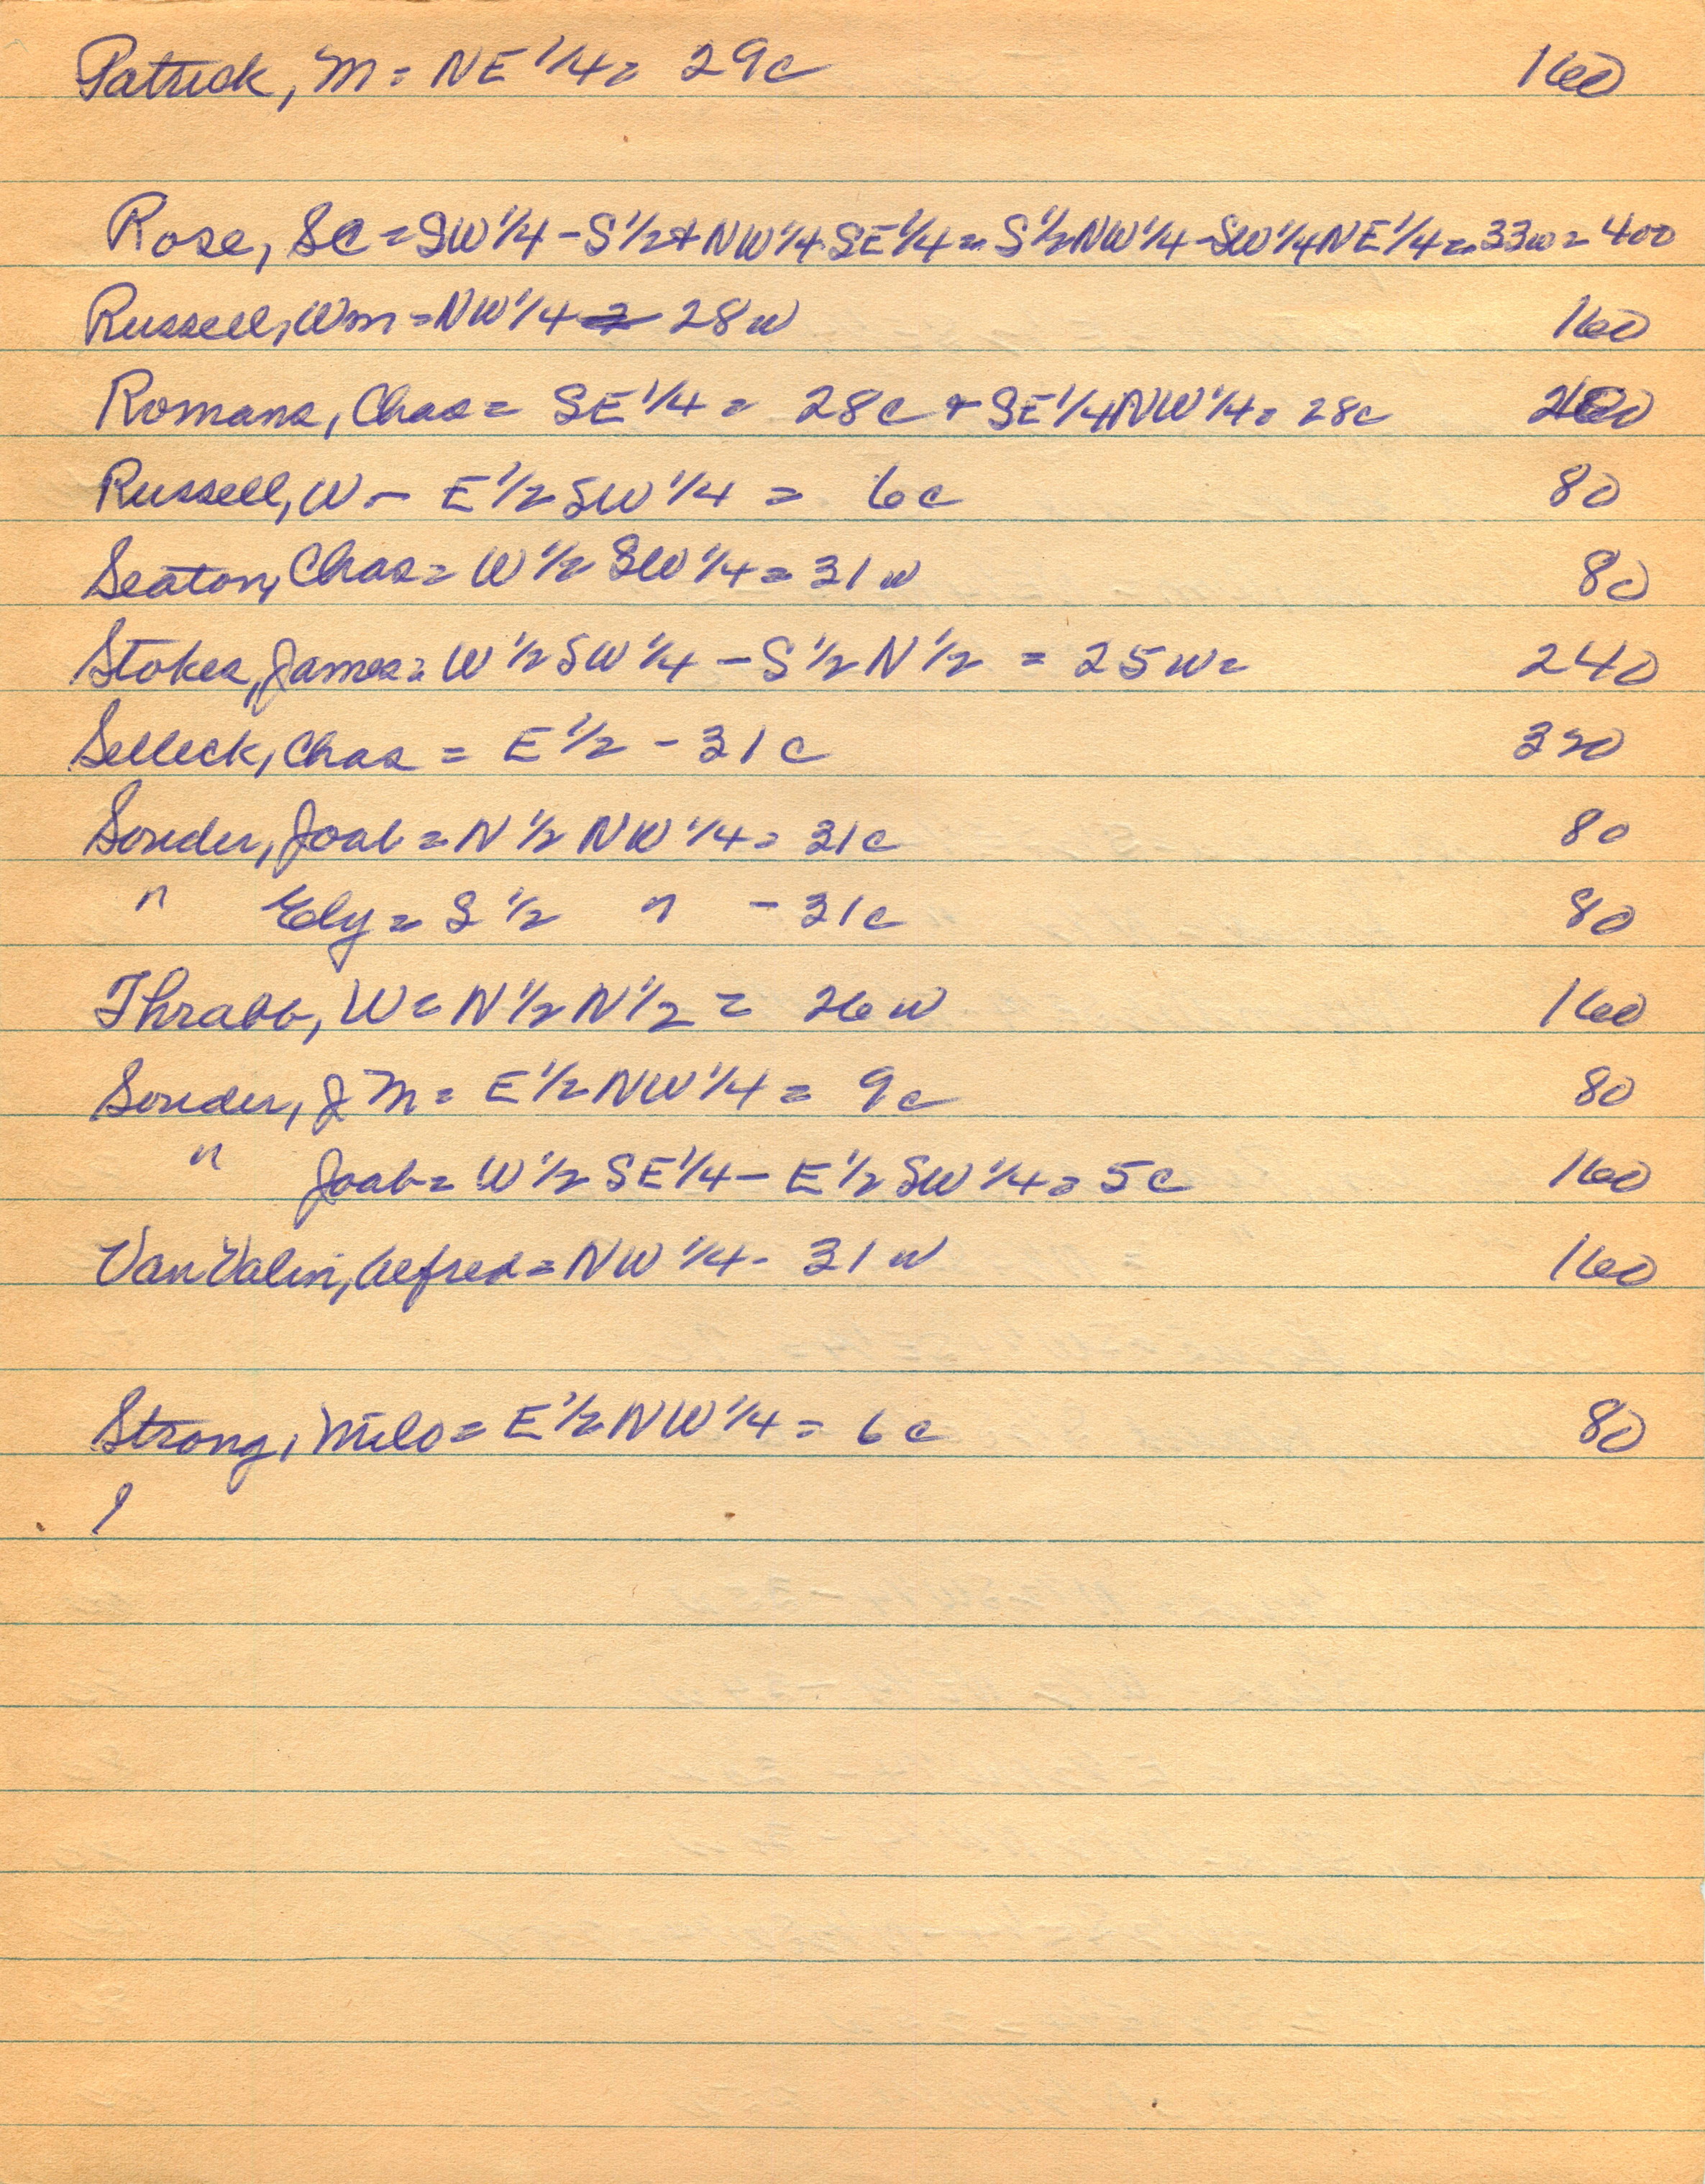 Patrick, M = NE 1/4 = 29c 160
Rose, SC = SW 1/4 - S 1/2 + NW 1/4 SE 1/4 = S 1/2 NW 1/4 - SW 1/4 NE 1/4 = 33w = 400
Russell, Wm = NW 1/4 28w 160
Romans, Chas = SE 1/4 = 28c + SE 1/4 NW 1/4 = 28c
Russell, W - E 1/2 SW 1/4 = 6c 80
Seaton, Chas = W 1/2 SW 1/4 = 31w 80
Stokes, James = W 1/2 SW 1/4 - S 1/2 N 1/2 = 25w = 240
Selleck, Chas = E 1/2 - 31c 320
Souder, Joab = N 1/2 NW 1/4 = 31c 80
" Ely = S 1/2 " - 31c 80
Thrabb, W = N 1/2 N 1/2 = 26w 160
Souder, J M = E 1/2 NW 1/4 = 9c 80
" Joab = W 1/2 SE 1/4 - E 1/2 SW 1/4 = 5c 160
Van Valin, Alfred = NW 1/4 - 31w 160
Strong, Milo = E 1/2 NW 1/4 = 6c 80